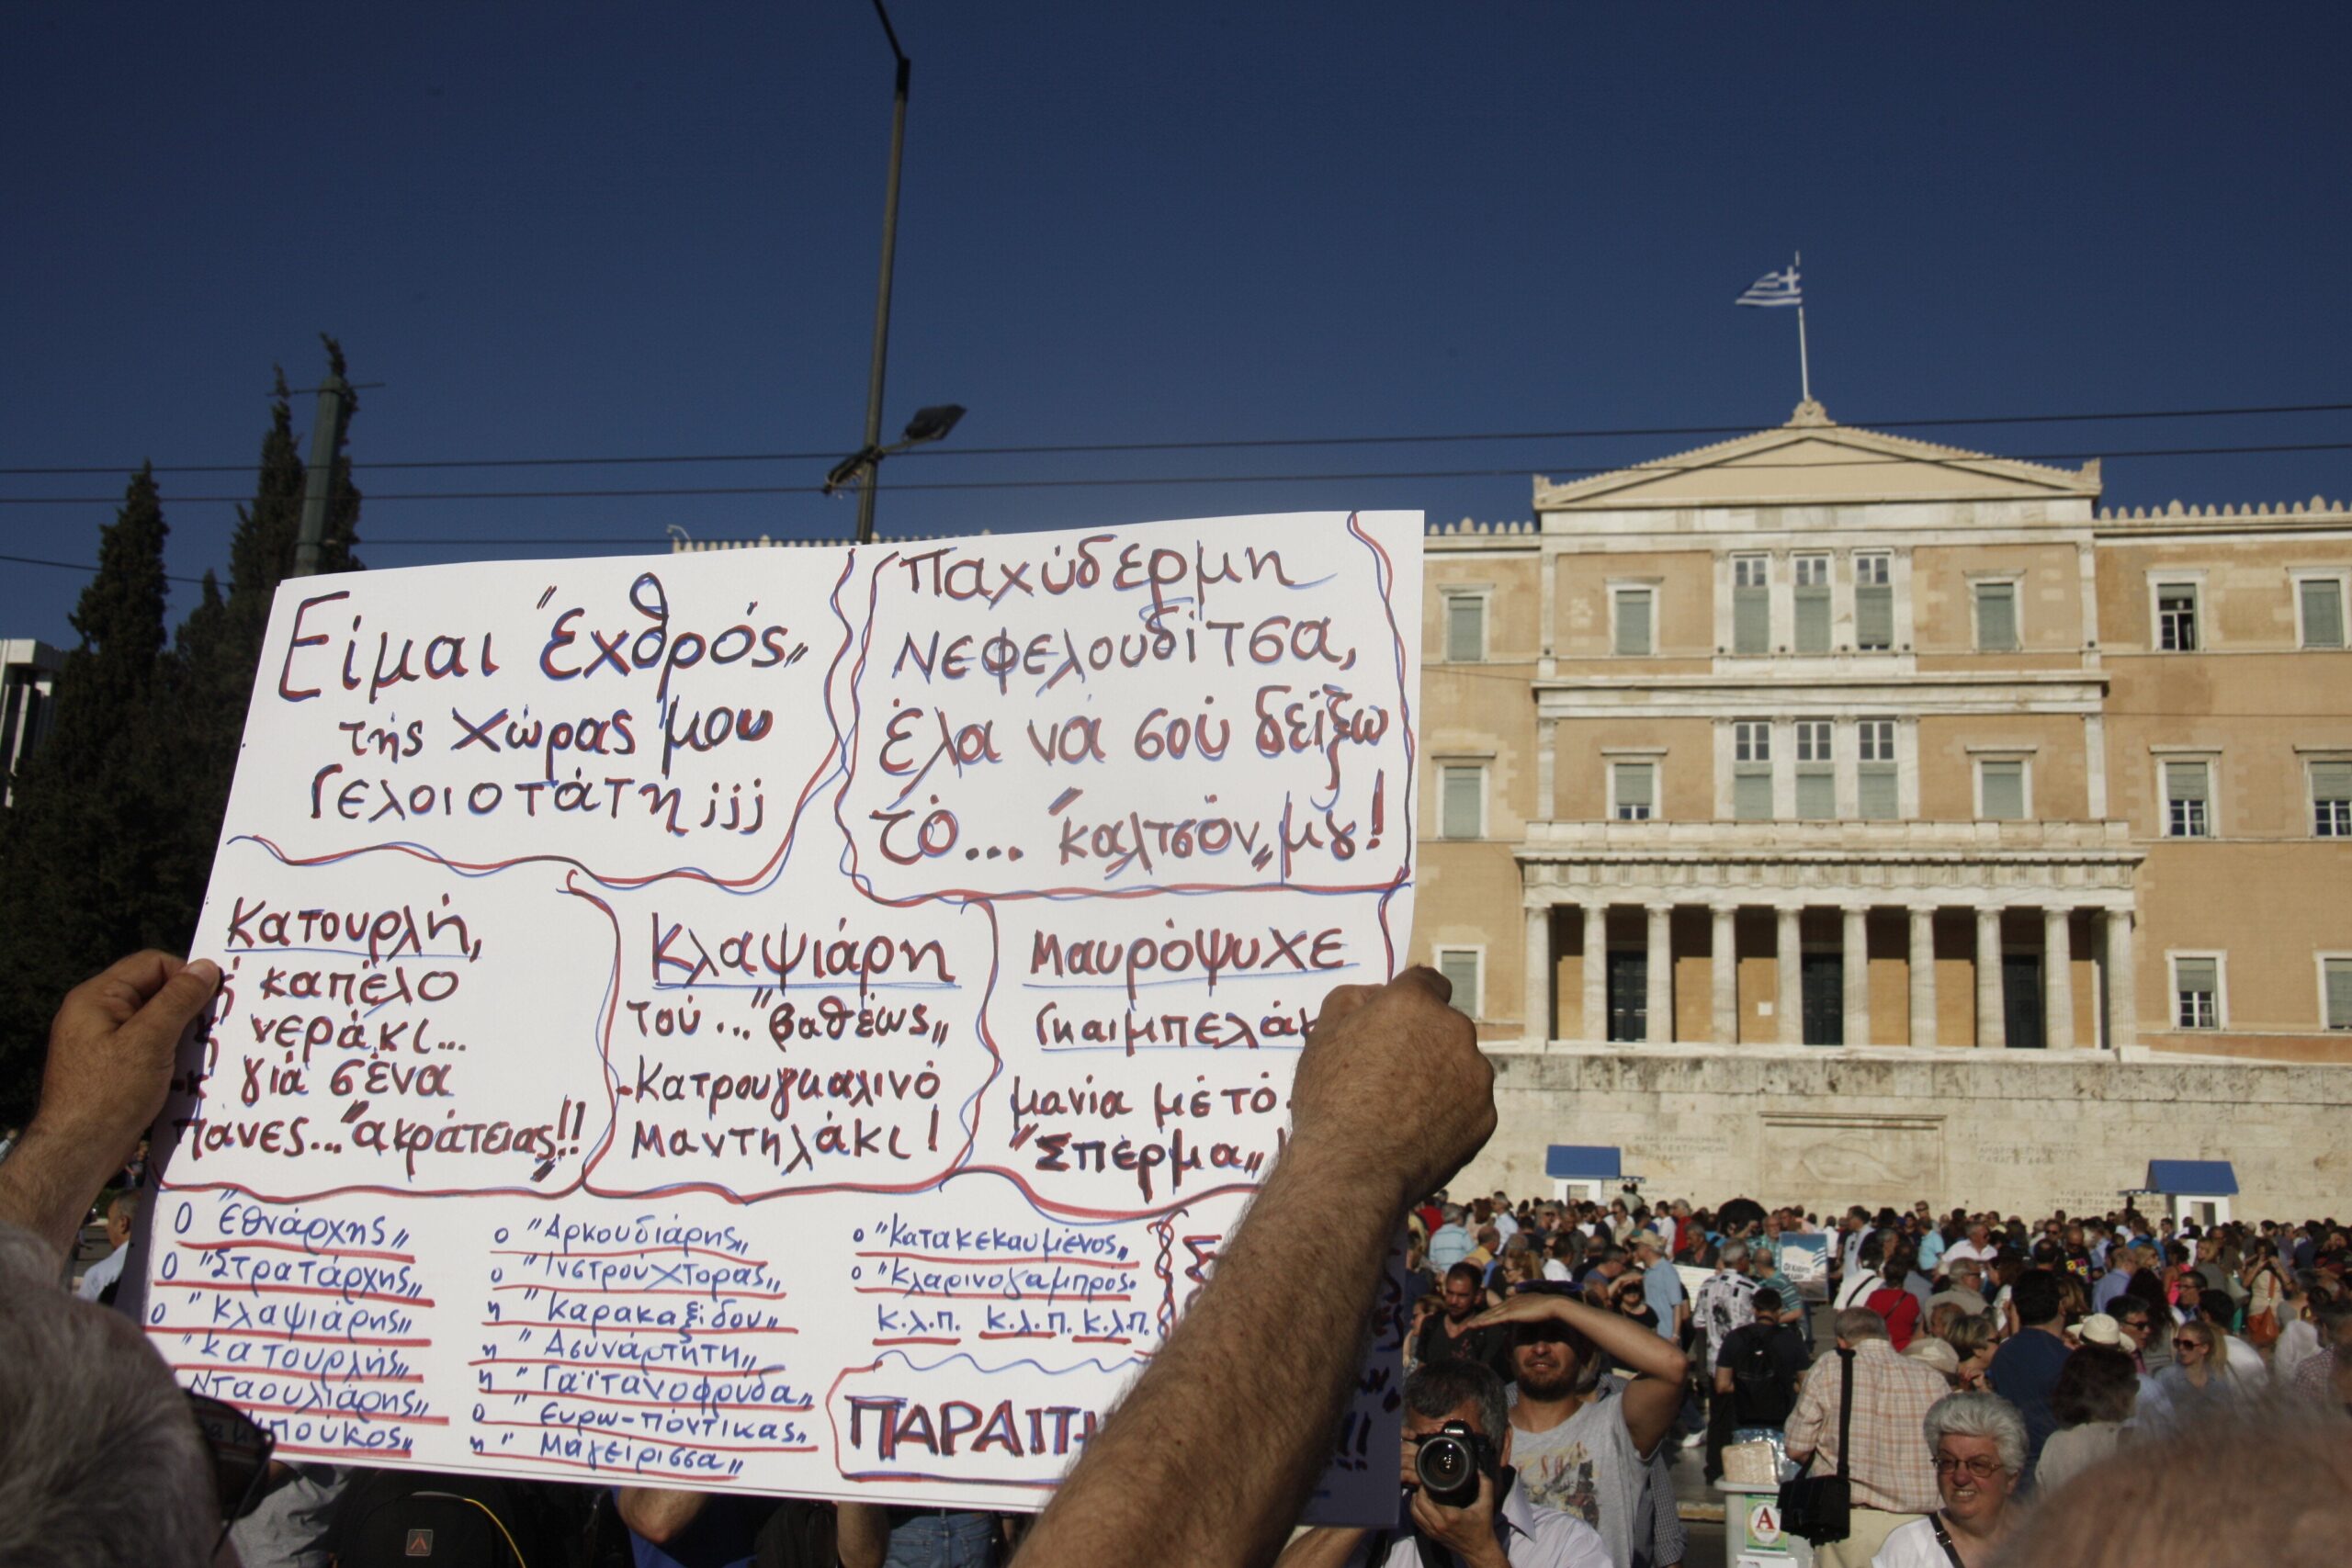 Είμαι "έχθρός"
τής Χώρας μου
Γελοιοτάτη ¡¡¡
Παχύδερμη
Νεφελουδίτσα,
έλα νά σού δείξω
τό... "καλτσόν" μȣ!
Κατουρλή,
καπέλο
νεράκι...
γιά σένα
πάνες..."ακράτειας"!!
Κλαψιάρη
τού..."βαθέως"
-Κατρουγκαλινό
μαντηλάκι!
Μαυρόψυχε
μανία μέ τό
"Σπέρμα"
Ο "Εθνάρχης"
Ο "Στρατάρχης"
ο "Κλαψιάρης"
"Κατουρλής"
Νταουλιάρης"
ο "Αρκουδιάρης"
ο "Ινστρούχτορας"
η "Καρακαξίδου"
η "Ασυνάρτητη"
η "Γαϊτανοφρύδα"
ο "Ευρω-πόντικας"
η "Μαγείρισσα"
ο "Κατακεκαυμένος"
ο "Κλαρινογαμπρός"
κ.λ.π. κ.λ.π. κ.λ.π.